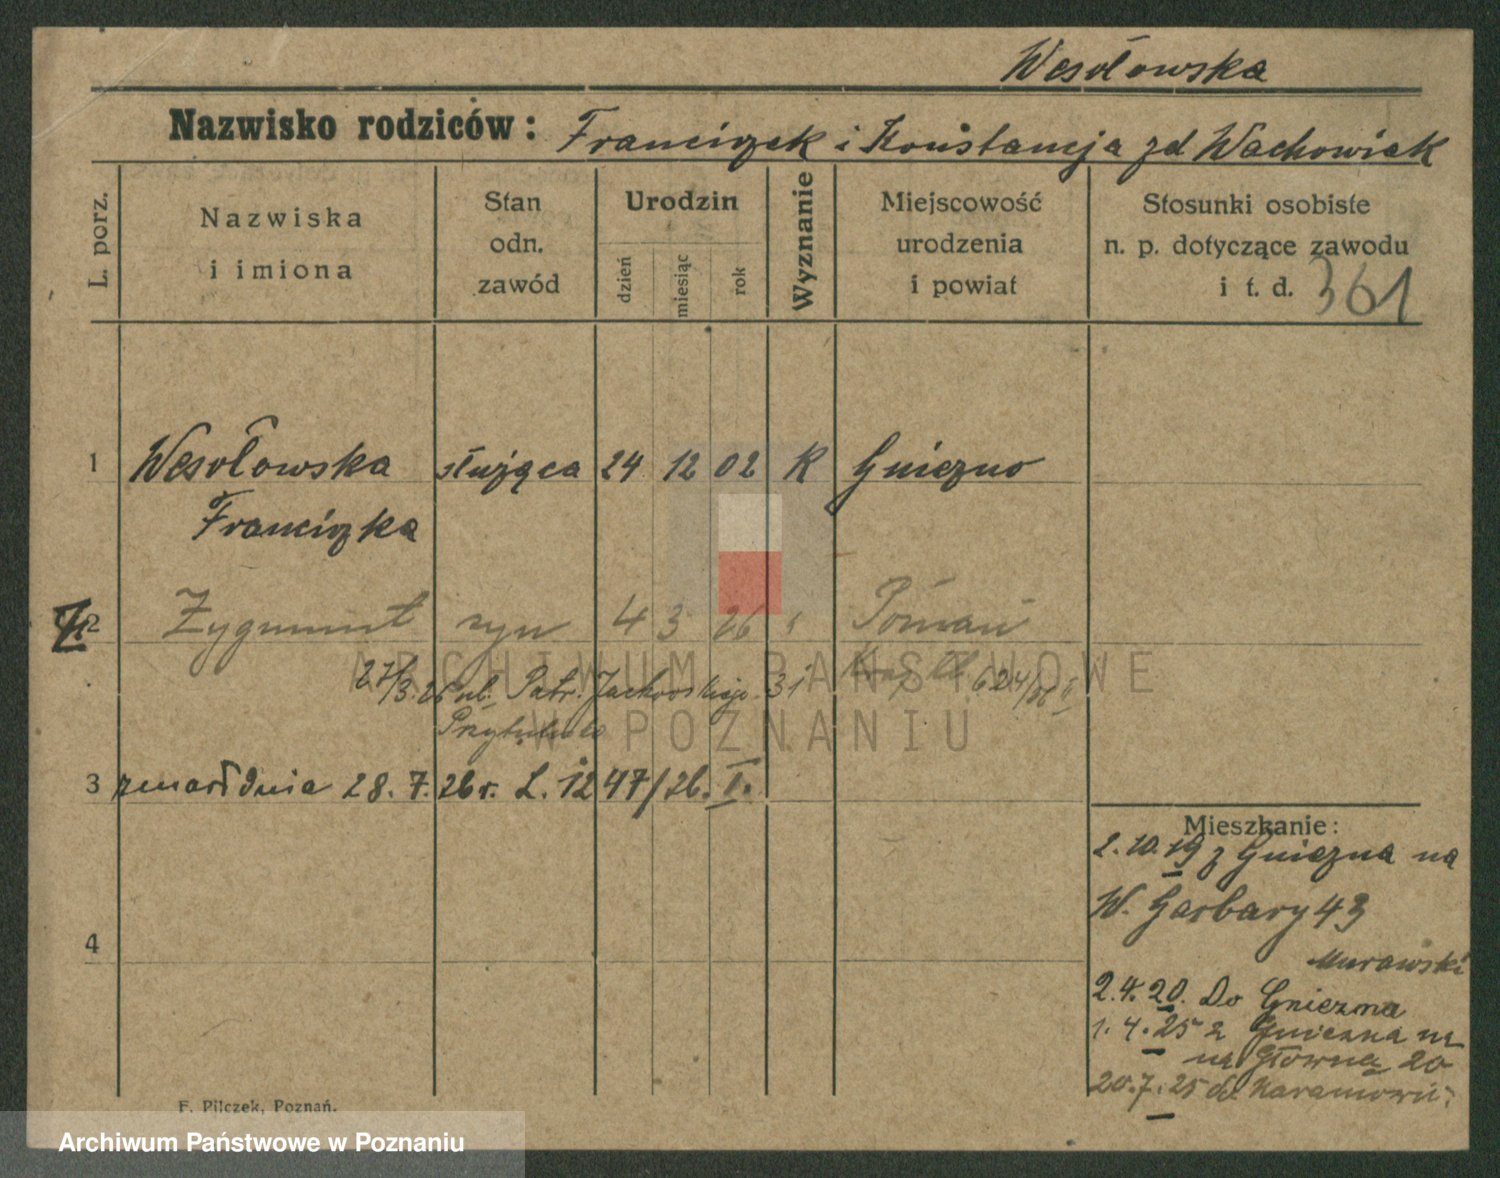 Wesołowska
Nazwisko rodziców: Franciszek i Konstancja zd Wachowiak
L. porz.
Nazwiska
i imiona
Stan
odn.
zawód
Urodzin
dzień
miesiąc
rok
Wyznanie
Miejscowość
urodzenia
i powiat
Stosunki osobiste
n. p. dotyczące zawodu
i t. d. 361
1 Wesołowska służąca 24 12 02 K Gniezno
Franciszka
2 Zygmunt syn 4 3 26 Poznań
27/3.26 ul. Patr. Jackowskiego 31
3 zmarł dnia 28. 7. 26 r. L. 1247/26. I.
4
Mieszkanie:
2.10.19 z Gniezna na
W. Garbary 43
Murawski
2.4.20. Do Gniezna
1.4.25 z Gniezna na
Główna 20
20.7.25 do
F. Pilczek, Poznań.
ARCHIWUM PAŃSTWOWE
W POZNANIU
Archiwum Państwowe w Poznaniu